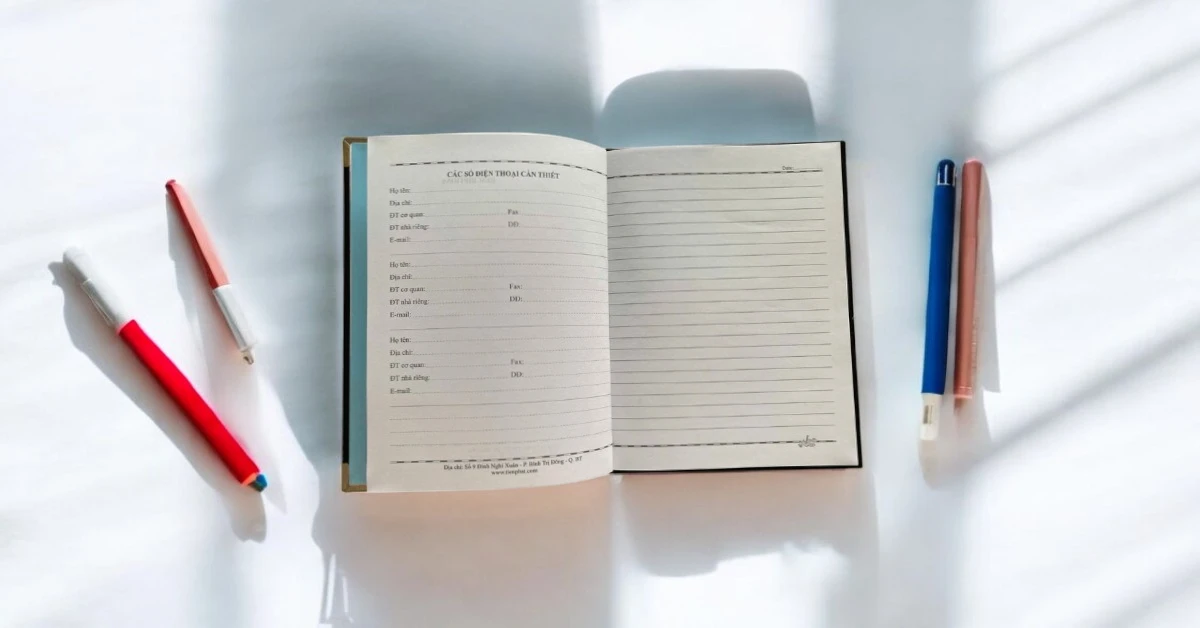 CÁC SỐ ĐIỆN THOẠI CẦN THIẾT
Họ tên:
Địa chỉ:
ĐT cơ quan: Fax:
ĐT nhà riêng: DĐ:
E-mail:
Họ tên:
Địa chỉ:
ĐT cơ quan: Fax:
ĐT nhà riêng: DĐ:
E-mail:
Họ tên:
Địa chỉ:
ĐT cơ quan: Fax:
ĐT nhà riêng: DĐ:
E-mail:
Địa chỉ: Số 9 Đình Nghi Xuân - P. Bình Trị Đông - Q. BT
Date: